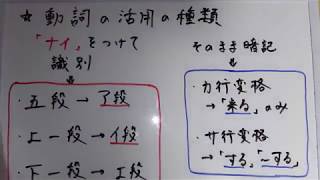 ☆ 動詞の活用の種類
「ナイ」をつけて
識別
・五段→ア段
・上一段→イ段
・下一段→エ段
そのまま暗記
・カ行変格
→「来る」のみ
・サ行変格
→「する」「〜する」